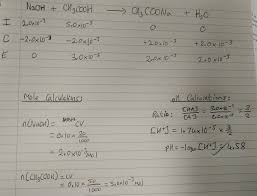 NaOH + CH₃COOH → CH₃COONa + H₂O
I 2.0×10⁻³ 5.0×10⁻³ 0 0
C -2.0×10⁻³ -2.0×10⁻³ +2.0×10⁻³ +2.0×10⁻³
E 0 3.0×10⁻³ 2.0×10⁻³ 2.0×10⁻³
Mole Calculations: pH Calculations:
n(NaOH) = CV
= 0.10 × 20/1000
= 2.0×10⁻³ mol
n(CH₃COOH) = CV
= 0.10 × 50/1000 = 5.0×10⁻³ mol
Ratio: [HA]/[A⁻] = 3.0×10⁻³/2.0×10⁻³ = 3/2
[H⁺] = 1.74×10⁻⁵ × 3/2
pH = -log₁₀[H⁺] = 4.58